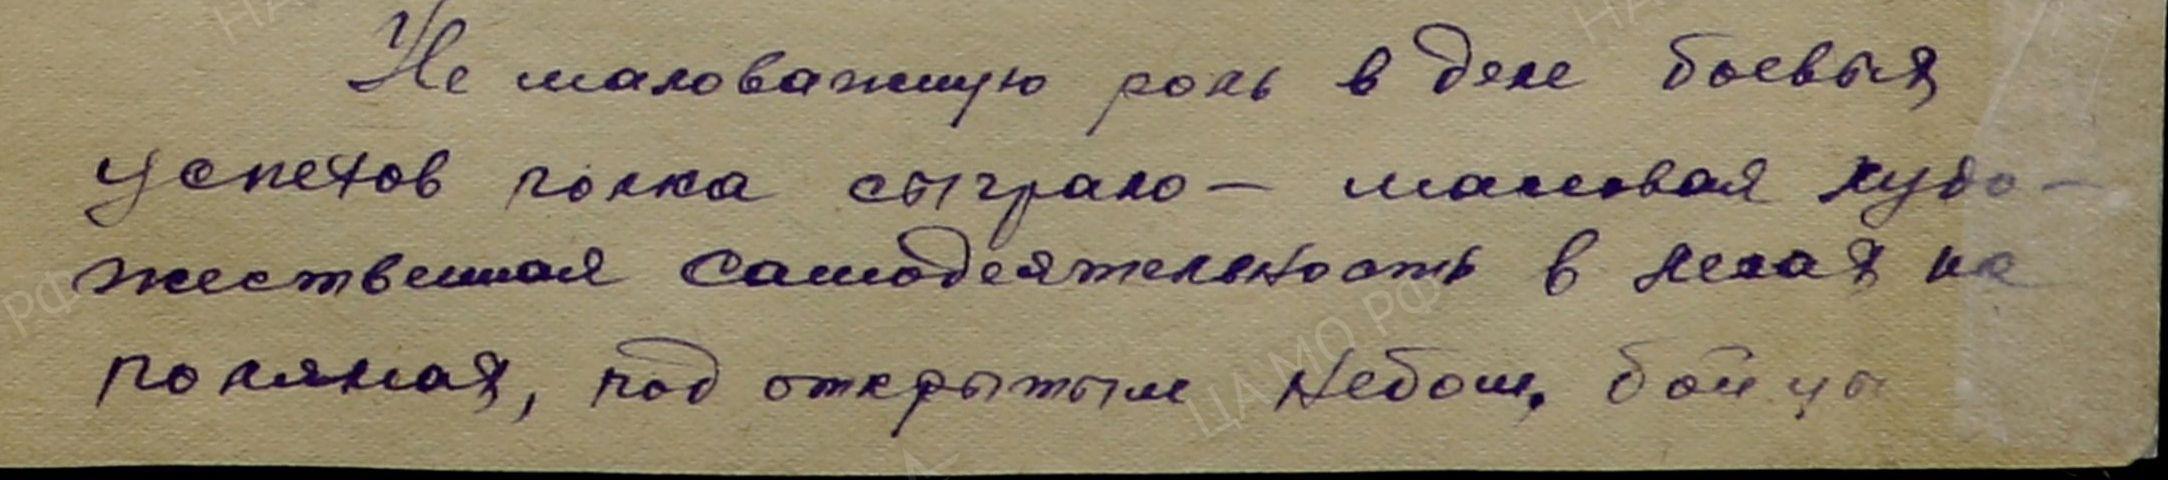 Не маловажную роль в деле боевых
успехов полка сыграло - массовая худо-
жественная самодеятельность в лесах на
полянах, под открытым небом, бойцы